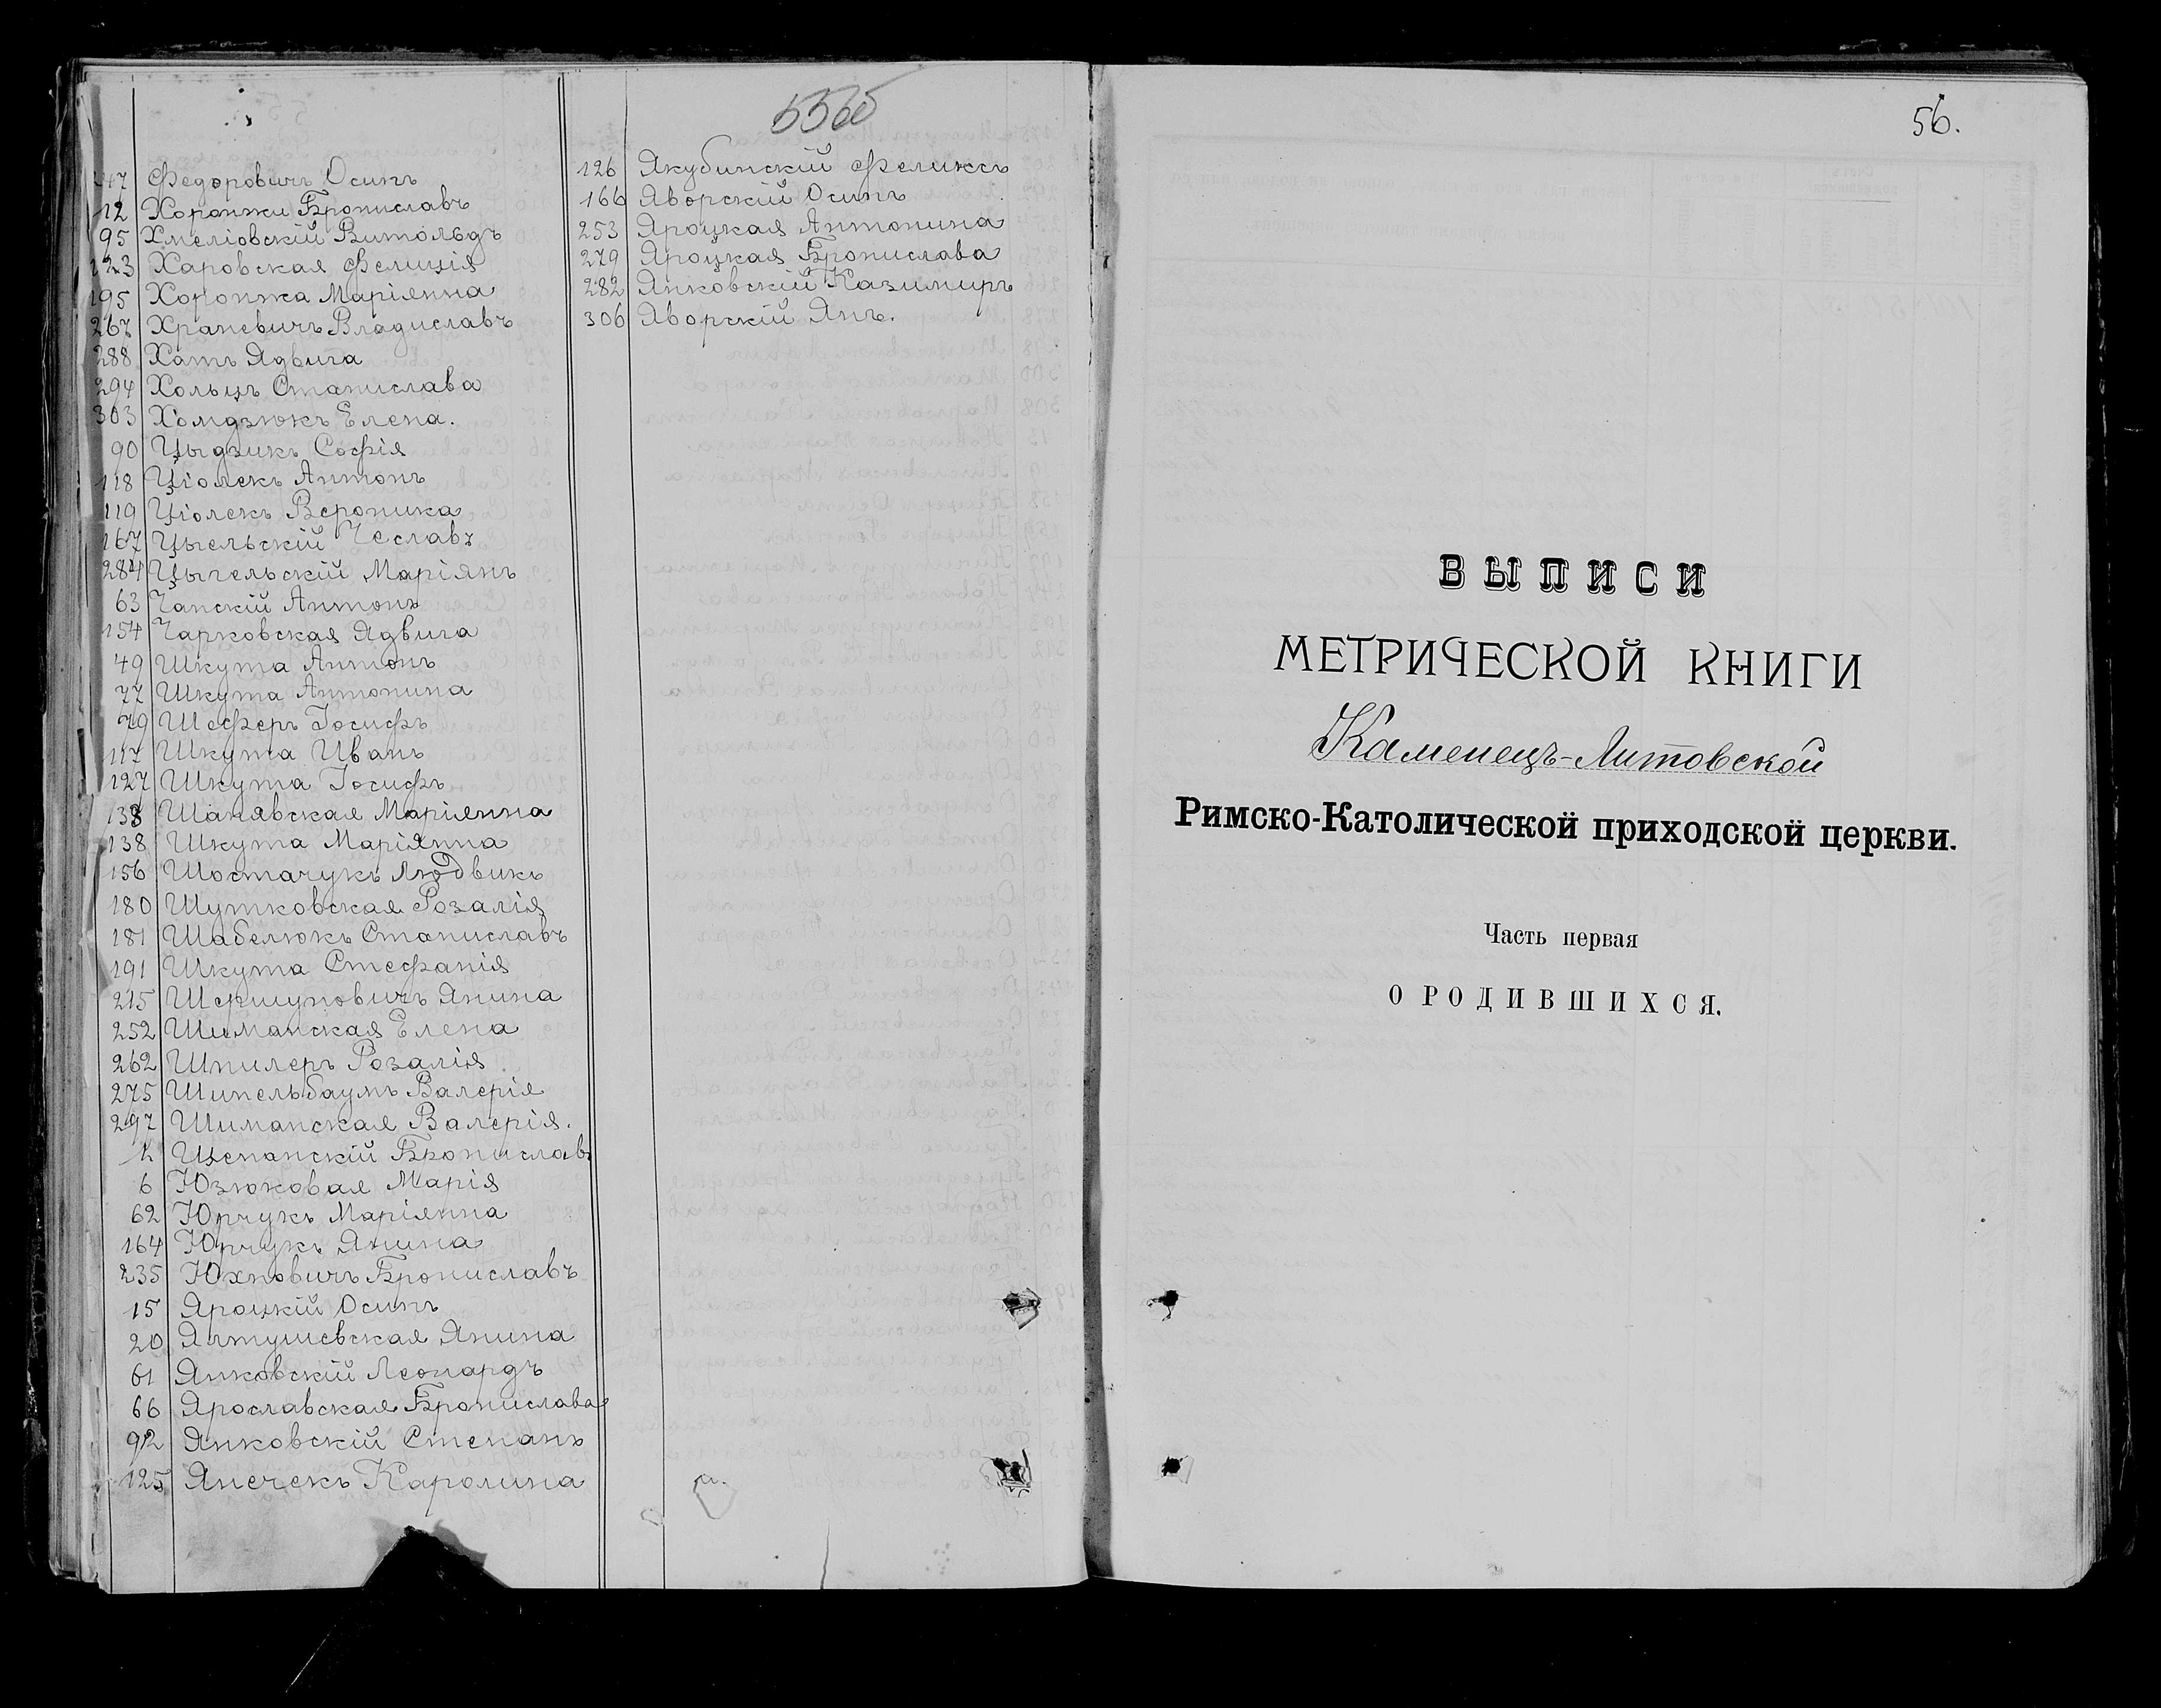 55об
47 Федоровичъ Осипъ
12 Хоронжи Брониславъ
95 Хмеліовскій Витольдъ
123 Харовская Фелиція
195 Хоронжа Маріянна
267 Храневичъ Владиславъ
288 Хатъ Ядвига
294 Хольцъ Станислава
303 Хомдзюкъ Елена.
90 Цыдзикъ Софія
118 Ціолекъ Антонъ
119 Ціолекъ Вероника
167 Цыельскій Чеславъ
284 Цыгельскій Маріянъ
63 Чапскій Антонъ
154 Чарковская Ядвига
49 Шкута Антонъ
77 Шкута Антонина
79 Шеферъ Іосифъ
117 Шкута Иванъ
127 Шкута Іосифъ
133 Шанявская Маріянна
138 Шкута Маріянна
156 Шостачукъ Людвикъ
180 Шутковская Розалія
181 Шабелюкъ Станиславъ
191 Шкута Стефанія
215 Шершуновичъ Янина
252 Шиманская Елена
262 Шпилеръ Розалія
275 Шипельбаумъ Валерія
297 Шиманская Валерія.
2 Щепанскій Брониславъ
6 Юзюковая Марія
62 Юрчукъ Маріянна
164 Юрчукъ Янина
235 Юхновичъ Брониславъ
15 Яроцкій Осипъ
20 Ялтушевская Янина
61 Янковскій Леонардъ
66 Ярославская Бронислава
92 Янковскій Степанъ
125 Янечекъ Каролина
126 Якубинскій Феликсъ
166 Яворскій Осипъ
253 Яроцкая Антонина
279 Яроцкая Бронислава
282 Янковскій Казимиръ
306 Яворскій Янъ.
56.
ВЫПИСИ
МЕТРИЧЕСКОЙ КНИГИ
Каменецъ-Литовской
Римско-Католической приходской церкви.
Часть первая
О РОДИВШИХСЯ.